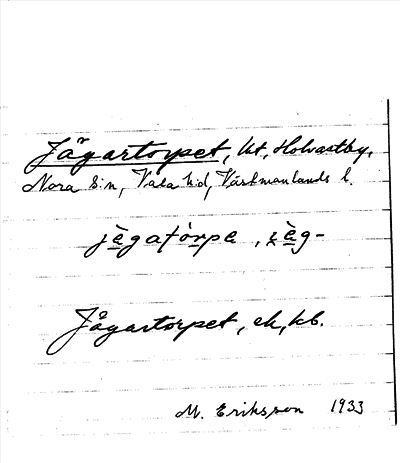 Jägartorpet, ht, Holvastby,
Nora s:n, Vala hd, Västmanlands l.
jègatòrpe, ɩ̯èg-
Jägartorpet, ek, kb.
M. Eriksson 1933